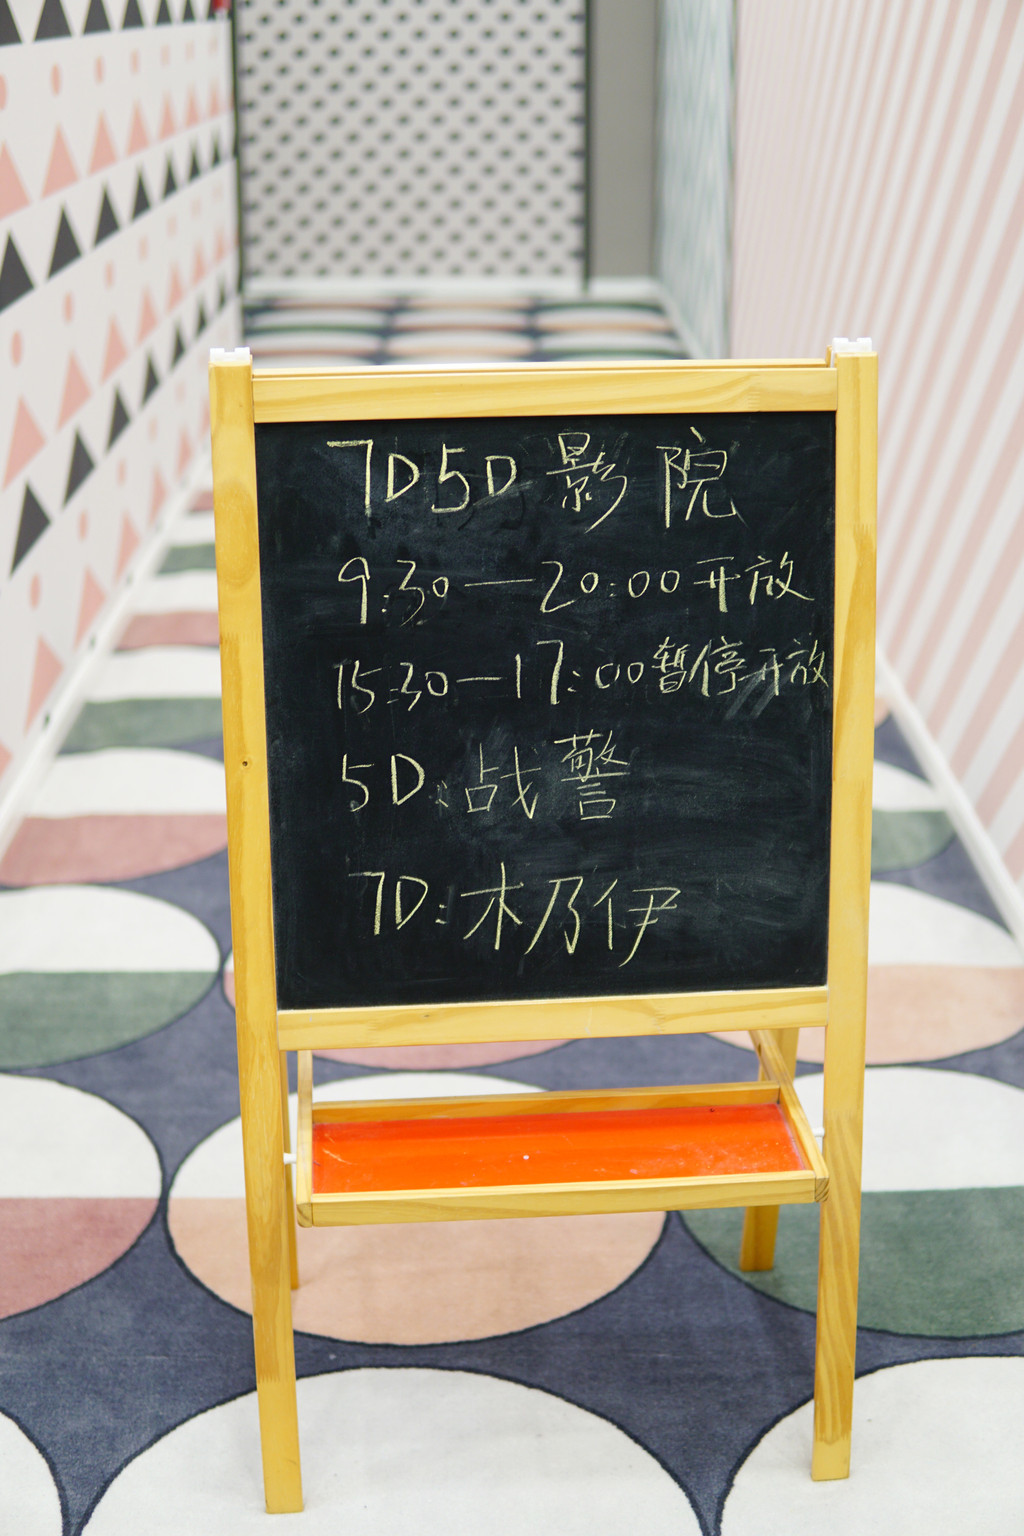 7D5D影院
9:30—20:00开放
15:30—17:00暂停开放
5D:战警
7D:木乃伊